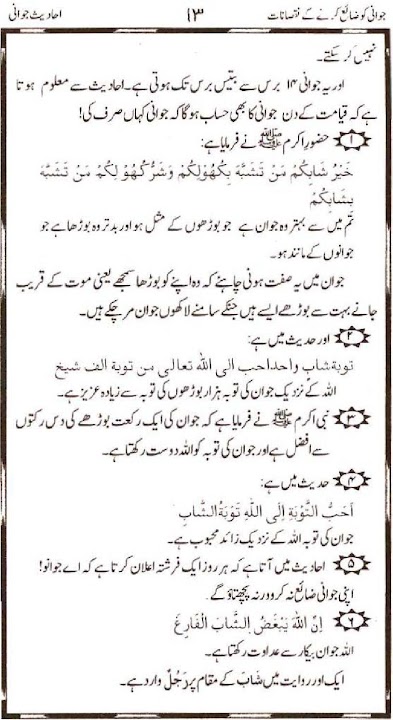 احادیث جوانی ۱۳ جوانی کو ضائع کرنے کے نقصانات
نہیں کر سکتے۔
اور یہ جوانی ۱۴ برس سے بتیس برس تک ہوتی ہے۔ احادیث سے معلوم ہوتا
ہے کہ قیامت کے دن جوانی کا بھی حساب ہوگا کہ جوانی کہاں صرف کی!
۱ حضور اکرم ﷺ نے فرمایا ہے:
خَيْرُ شَابِكُمْ مَنْ تَشَبَّهَ بِكُهُولِكُمْ وَشَرُّ كُهُولِكُمْ مَنْ تَشَبَّهَ
بِشَابِكُمْ
تم میں سے بہتر وہ جوان ہے جو بوڑھوں کے مثل ہو اور بدتر وہ بوڑھا ہے جو
جوانوں کے مانند ہو۔
جوان میں یہ صفت ہونی چاہئے کہ وہ اپنے کو بوڑھا سمجھے یعنی موت کے قریب
جانے بہت سے بوڑھے ایسے ہیں جنکے سامنے لاکھوں جوان مر چکے ہیں۔
۲ اور حدیث میں ہے:
توبة شاب واحد احب الى الله تعالى من توبة الف شيخ
اللہ کے نزدیک جوان کی توبہ ہزار بوڑھوں کی توبہ سے زیادہ عزیز ہے۔
۳ نبی اکرم ﷺ نے فرمایا ہے کہ جوان کی ایک رکعت بوڑھے کی دس رکتوں
سے افضل ہے اور جوان کی توبہ کو اللہ دوست رکھتا ہے۔
۴ حدیث میں ہے:
اَحَبُّ التَّوْبَةِ اِلَى اللَّهِ تَوْبَةُ الشَّابِ
جوان کی توبہ اللہ کے نزدیک زائد محبوب ہے۔
۵ احادیث میں آتا ہے کہ ہر روز ایک فرشتہ اعلان کرتا ہے کہ اے جوانو!
اپنی جوانی ضائع نہ کرو ورنہ پچھتاؤ گے۔
۶ اِنَّ اللَّهَ يَبْغَضُ الشَّابَ الْفَارِغَ
اللہ جوان بیکار سے عداوت رکھتا ہے۔
ایک اور روایت میں شَابَ کے مقام پر رَجُلٌ وارد ہے۔